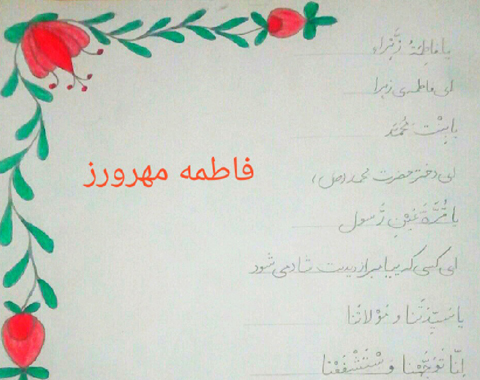 یا فاطِمَةُ زَّهراء
ای فاطمه‌ی زهرا
یا بِنْتَ مُحَمَّد
ای دختر حضرت محمد (ص)
فاطمه مهرورز
یا قُرَّةَ عَینِ رَّسول
ای کسی که پیامبر از دیدنت شاد می شود
یا سَیِّدَتَنا وَ مَوْلاتَنا
اِنّا تَوَجَّهْنا وَ سْتَشْفَعْنا